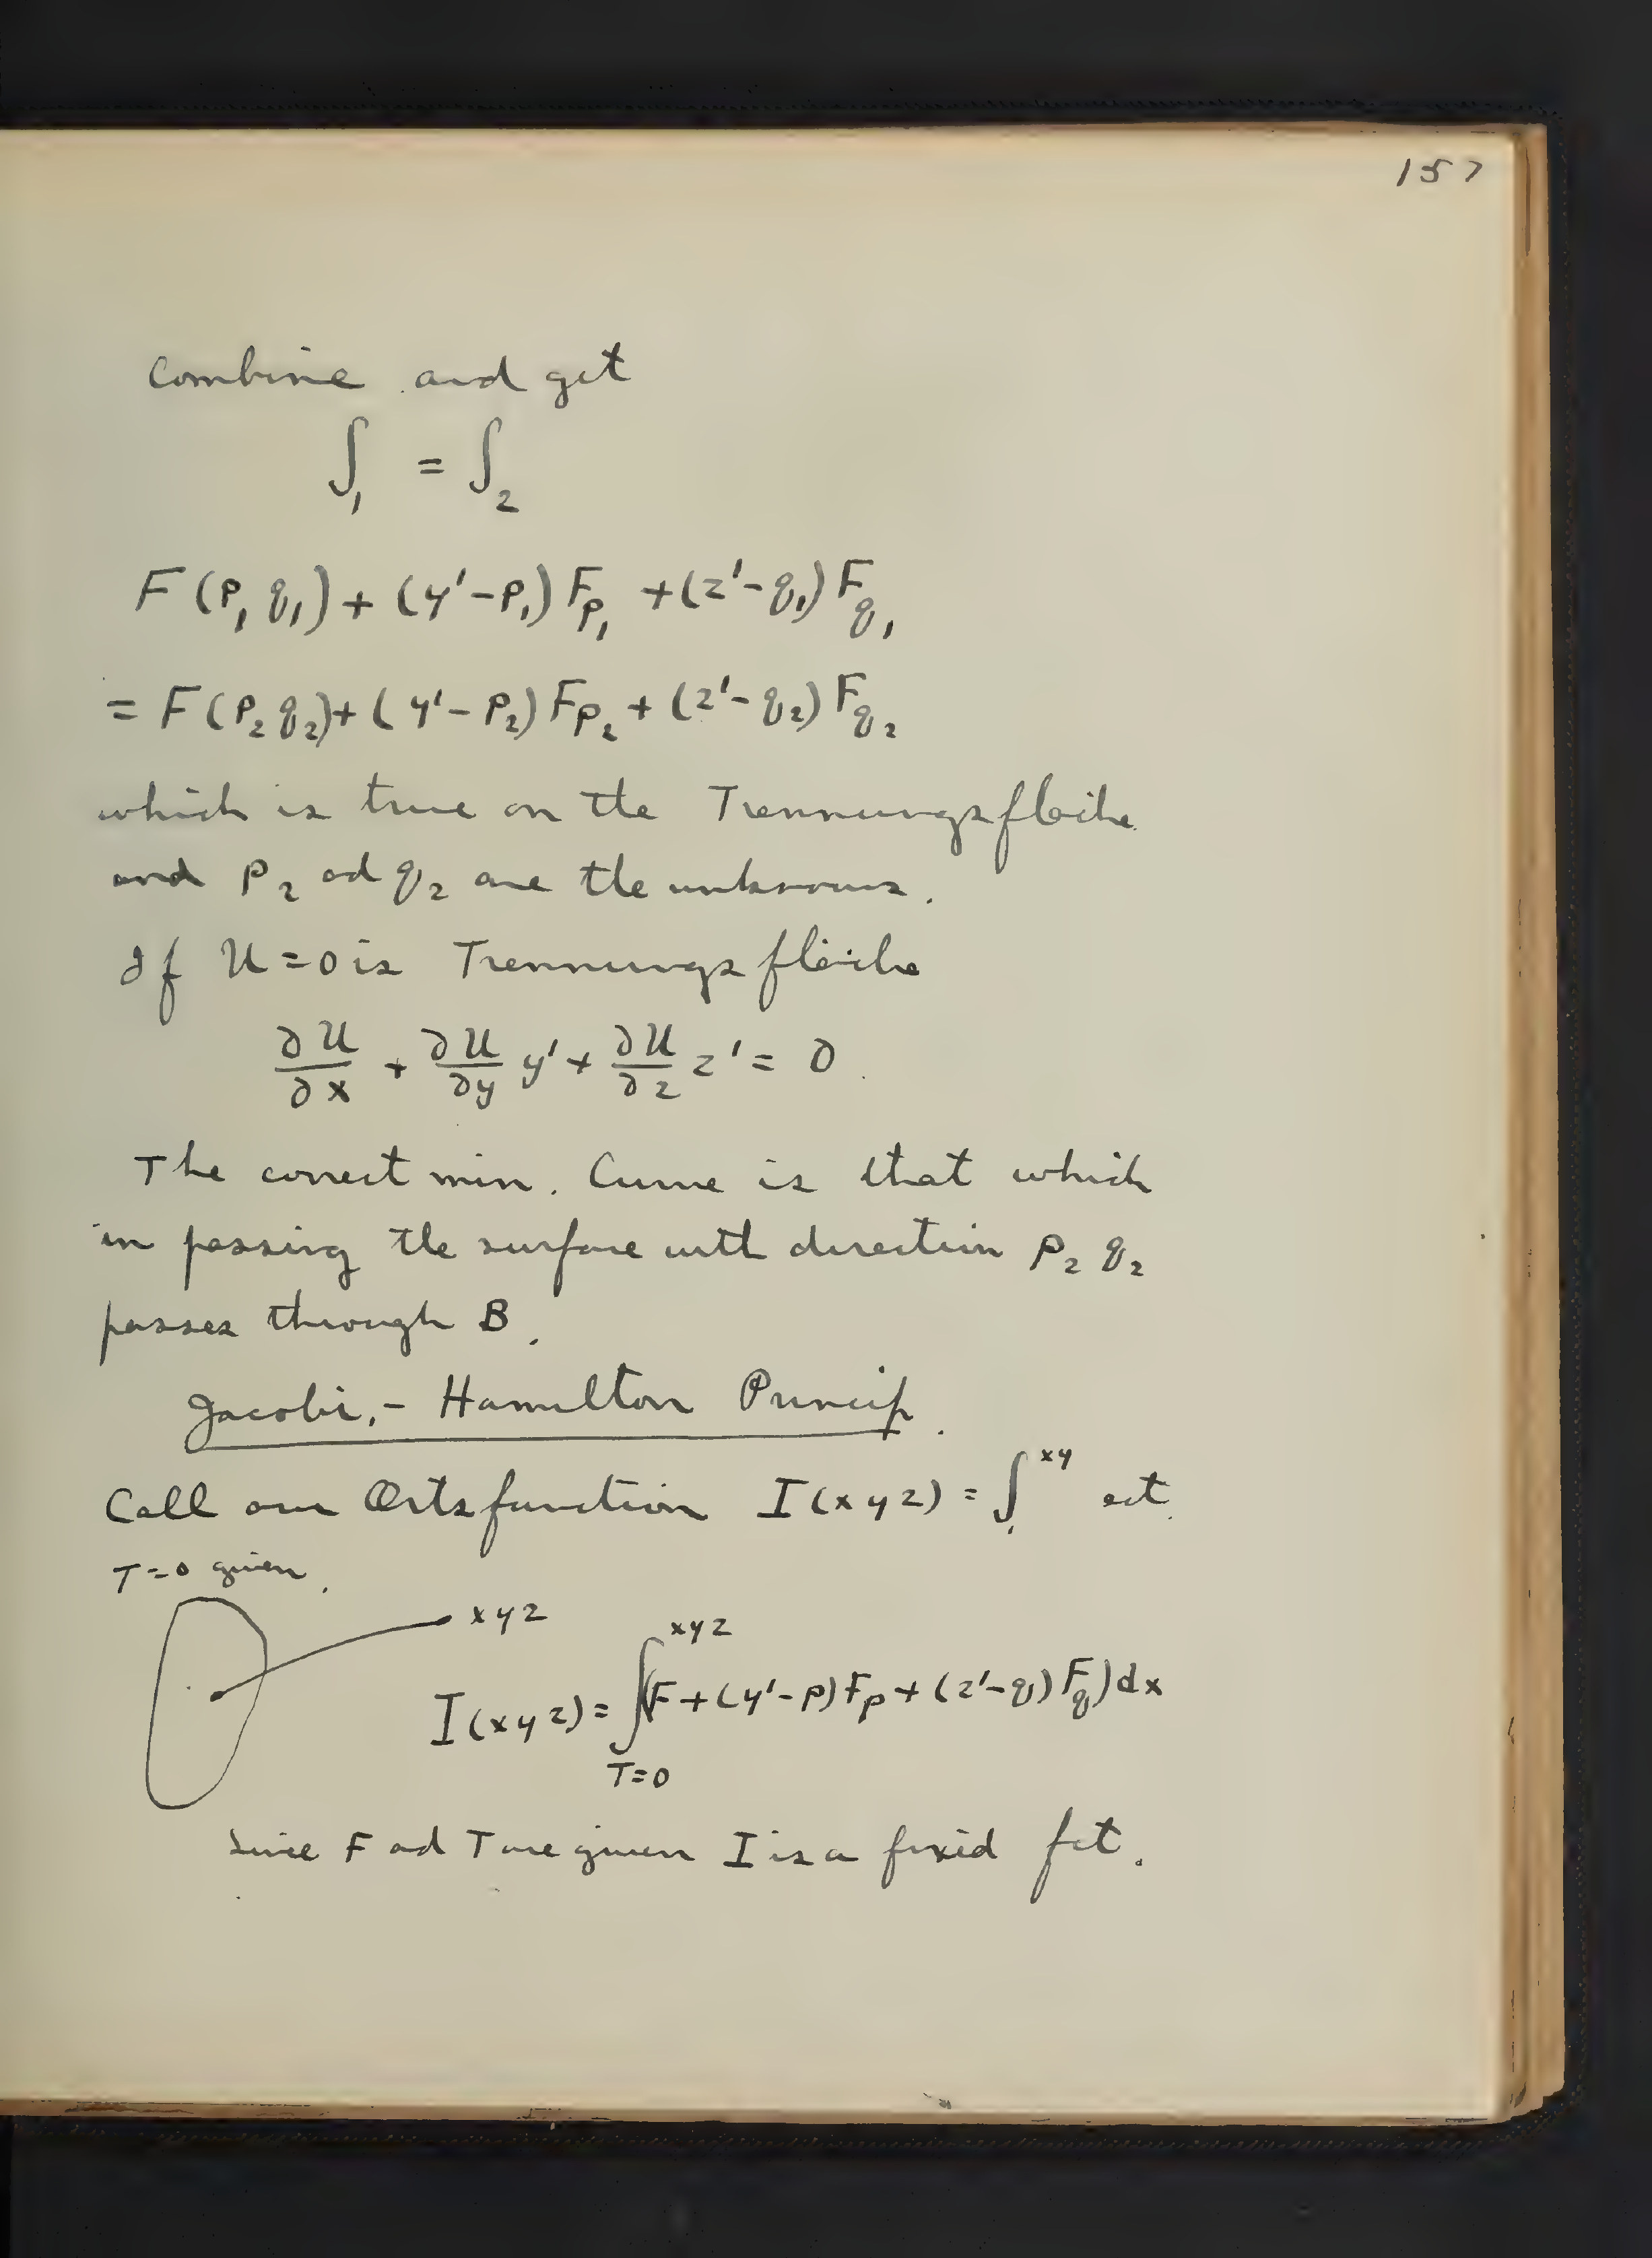 157
Combine and get
∫₁ = ∫₂
F(p₁ q₁) + (y' - p₁) F_p₁ + (z' - q₁) F_q₁
= F(p₂ q₂) + (y' - p₂) F_p₂ + (z' - q₂) F_q₂
which is true on the Trennungsfläche
and p₂ ad q₂ are the unknowns.
If U = 0 is Trennungsfläche
∂U/∂x + ∂U/∂y y' + ∂U/∂z z' = 0
The correct min. Curve is that which
in passing the surface with direction p₂ q₂
passes through B.
Jacobi,- Hamilton Princip.
Call our Ortsfunction I(xyz) = ∫^xy ect.
T=0 given.
xyz
I(xyz) = ∫_{T=0}^{xyz} (F + (y' - p) F_p + (z' - q) F_q) dx
Since F ad T are given I is a fixed fct.